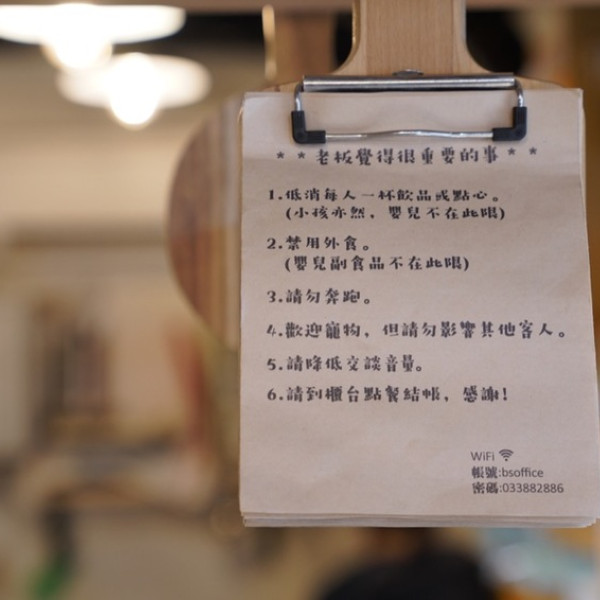 **老板覺得很重要的事**
1.低消每人一杯飲品或點心。
(小孩亦然，嬰兒不在此限)
2.禁用外食。
(嬰兒副食品不在此限)
3.請勿奔跑。
4.歡迎寵物，但請勿影響其他客人。
5.請降低交談音量。
6.請到櫃台點餐結帳，感謝!
WiFi
帳號:bsoffice
密碼:033882886